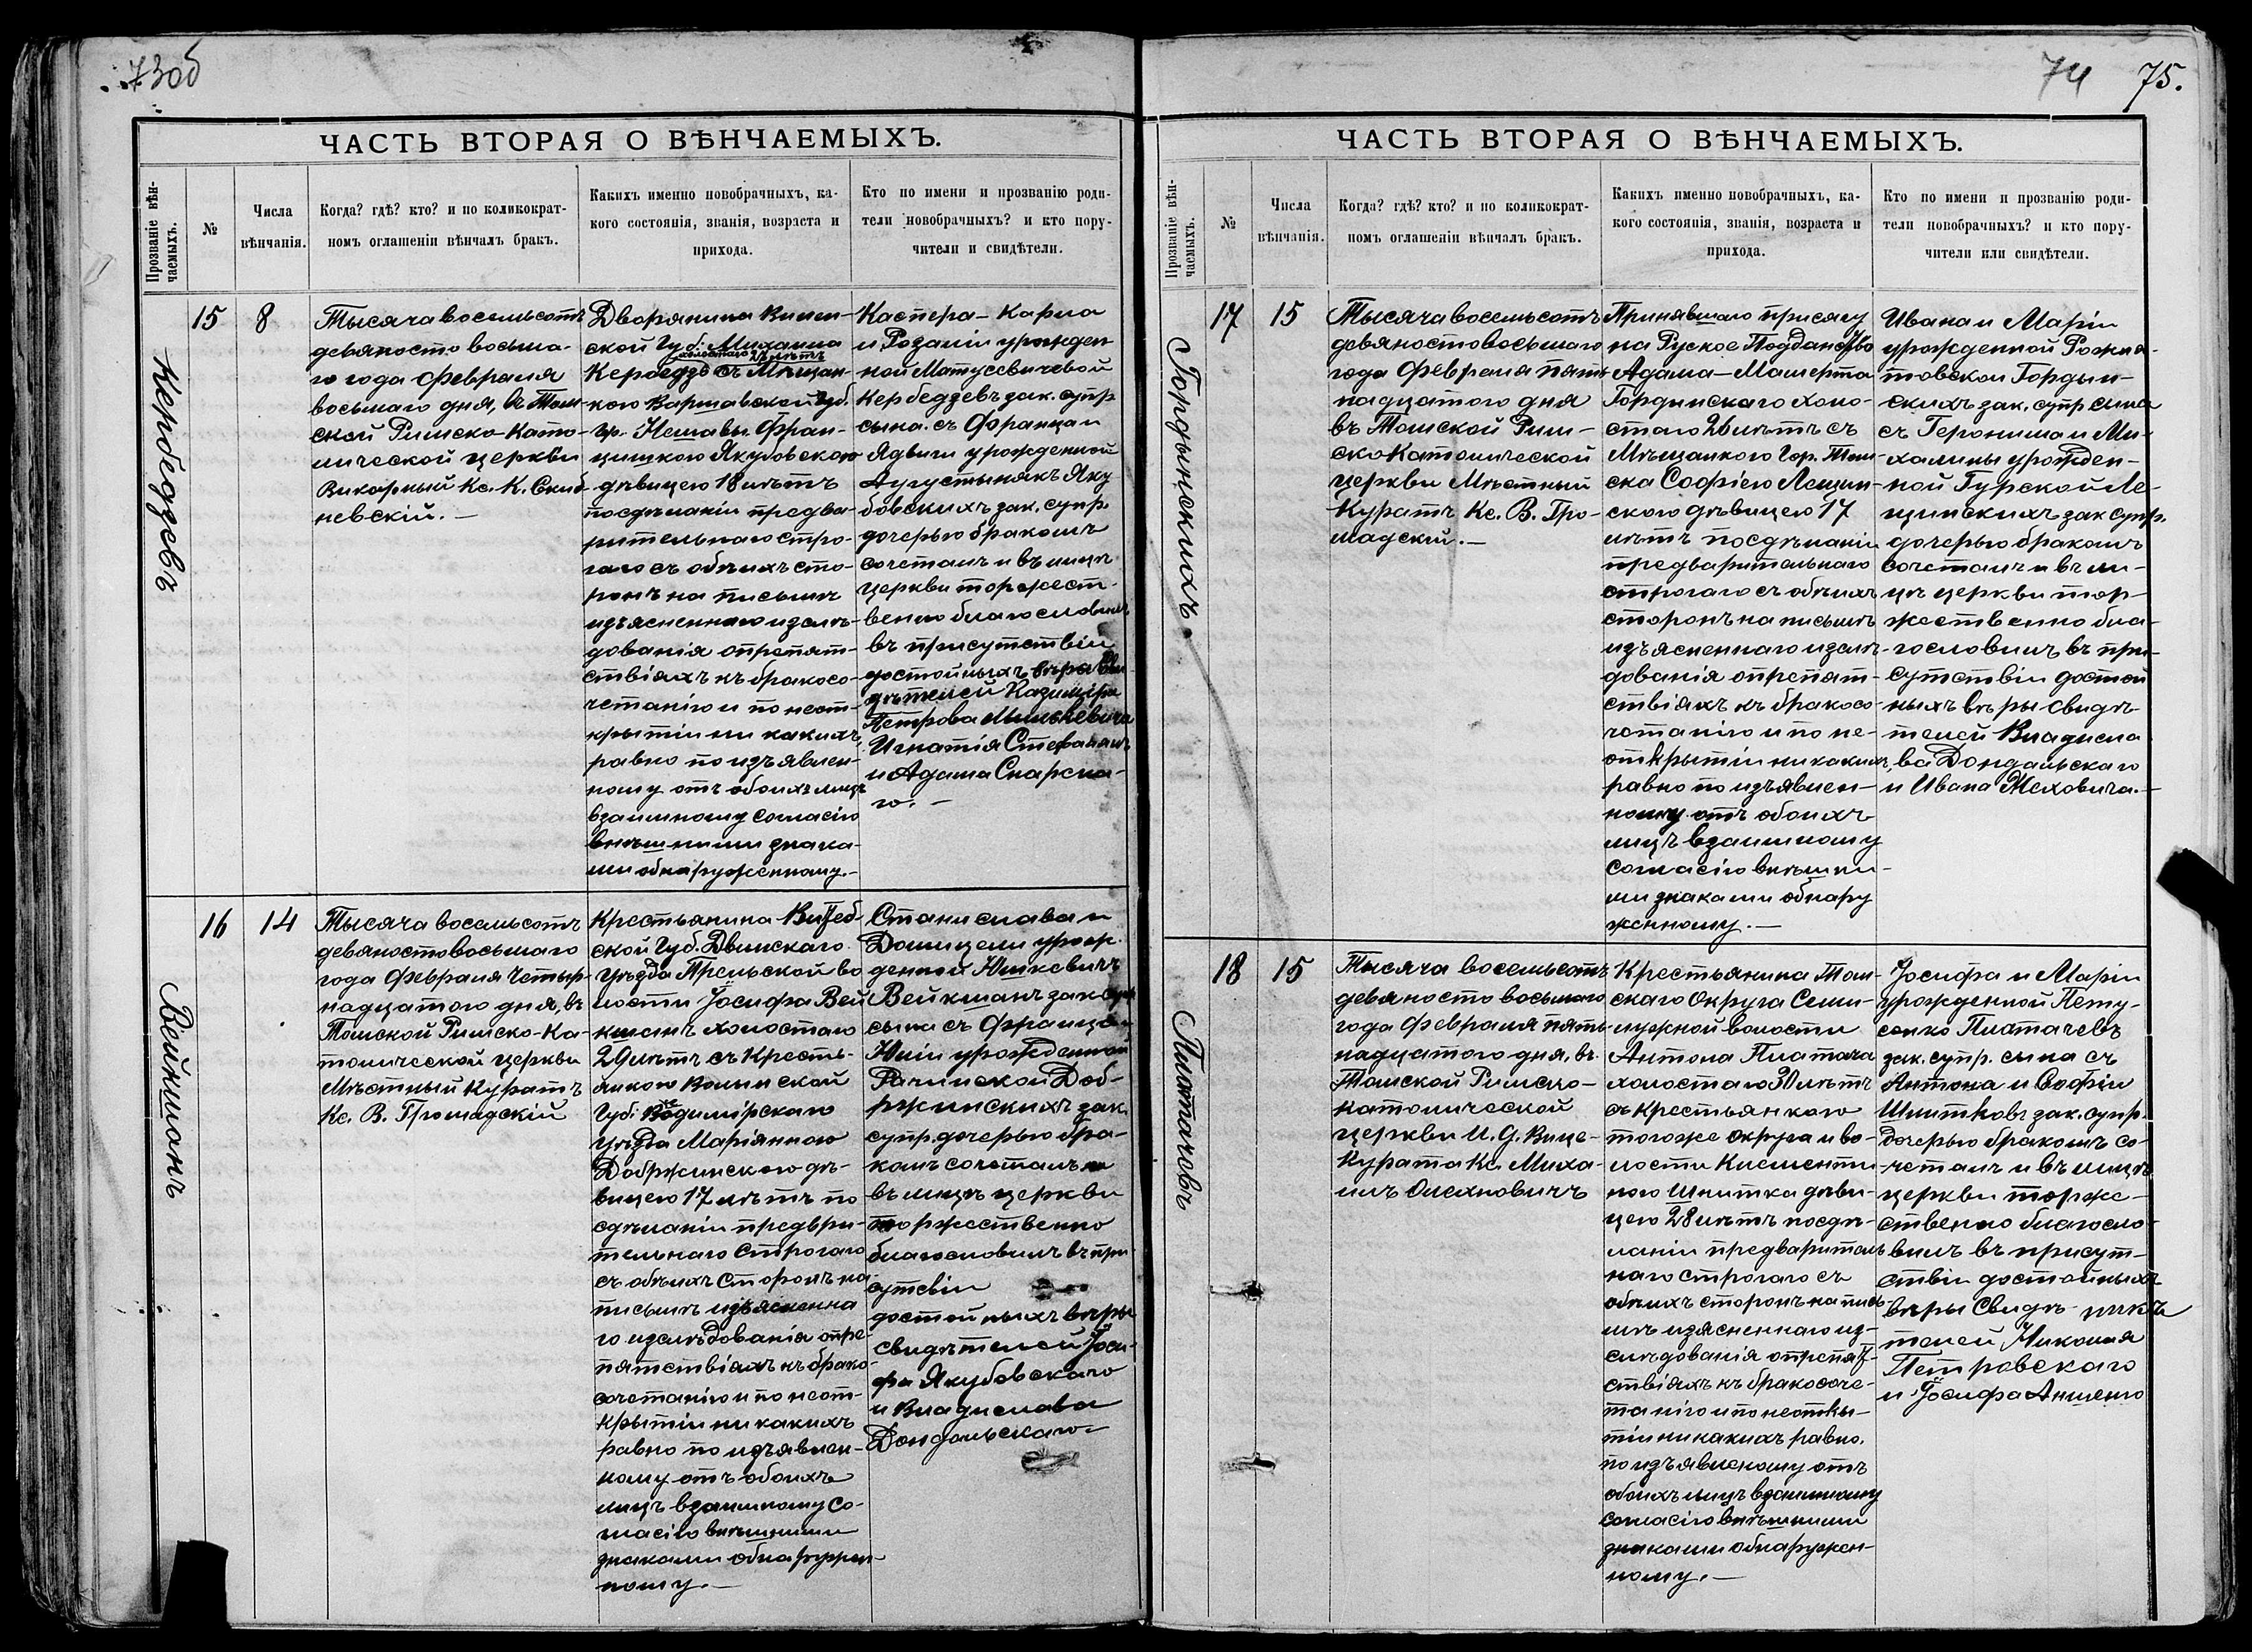 73об
ЧАСТЬ ВТОРАЯ О ВѢНЧАЕМЫХЪ.
Прозваніе вѣн-
чаемыхъ.
№
Числа
вѣнчанія.
Когда? гдѣ? кто? и по коликократ-
номъ оглашеніи вѣнчалъ бракъ.
Какихъ именно новобрачныхъ, ка-
кого состоянія, званія, возраста и
прихода.
Кто по имени и прозванію роди-
тели новобрачныхъ? и кто пору-
чители и свидѣтели.
Кербедзевъ
15
8
Тысяча восемьсотъ
девяносто восьма-
го года Февраля
восьмаго дня, въ Том-
ской Римско-Като-
лической церкви
Викарный Кс. К.
невскій.—
Дворянина Вилен-
ской Губ: Михаила
холостаго лѣтъ
съ Мѣщан-
кою Варшавской губ.
гр. Нешавы Фран-
цишкою Якубовскою
дѣвицею 18 лѣтъ
по сдѣланіи предва-
рительнаго стро-
гаго съ обѣихъ сто-
ронъ на письмѣ
изъясненнаго изслѣ-
дованія опрепят-
ствіяхъ къ бракосо-
четанію и по неот-
крытіи ни какихъ,
равно по изъявлен-
ному отъ обоихъ лицъ
взаимному согласію
внѣшними знака-
ми обнаруженному.—
Каспера-Карла
и Розаліи урожден-
ной Матусевичевой
Кербедзевъ зак. супр
сына. съ Францам
Ядвиги урожденной
Аугустынякъ Яку
бовскихъ зак. супр.
дочерью бракомъ
сочеталъ и въ лицѣ
церкви торжест-
венно благословилъ
въ присутствіи
достойныхъ вѣры Сви-
дѣтелей Казиміра
Петрова Милькевича
Игнатія
и Адама Снарска-
го.—
Войкшонъ
16
14
Тысяча восемьсотъ
девяностовосьмаго
года Февраля Четыр-
надцатого дня, въ
Томской Римско-Ка-
толической церкви
Мѣстный Куратъ
Кс. В. Громадскій
Крестьянина Витеб-
ской Губ. Двинскаго
уѣзда Прельской во
лости Іосифа Вей
кшанъ холостаго
29 лѣтъ съ Кресть-
янкою Волынской
Губ:
уѣзда Маріянною
Добржинскою дѣ-
вицею 17 лѣтъ по
сдѣланіи предвари-
тельнаго строгаго
съ обѣихъ Сторонъ на
письмѣ изъясненна
го изслѣдованія опре-
пятствіяхъ къ брако-
сочетанію и по неот-
крытіи ни какихъ
равно по изъявлен-
ному отъ обоихъ
лицъ взаимному со-
гласію внѣшними
знаками обнаружен-
ному.—
Станислава и
Домицели урож.
денной Юшкевичъ
Вейкшанъ зак. супр
сына съ Францом
Юліи урожденной
Рачинской Доб-
ржинскихъ зак.
супр. дочерью бра-
комъ сочеталъ и
въ лицѣ церкви
торжественно
благословилъ въ при
сутсвіи
достойныхъ вѣры
свидѣтелей Іоси-
фа Якубовскаго
и Владислава
Дондальскаго—
74
75.
ЧАСТЬ ВТОРАЯ О ВѢНЧАЕМЫХЪ.
Прозваніе вѣн-
чаемыхъ.
№
Числа
вѣнчанія.
Когда? гдѣ? кто? и по коликократ-
номъ оглашеніи вѣнчалъ бракъ.
Какихъ именно новобрачныхъ, ка-
кого состоянія, званія, возраста и
прихода.
Кто по имени и прозванію роди-
тели новобрачныхъ? и кто пору-
чители или свидѣтели.
Гордынскихъ
17
15
Тысяча восемьсотъ
девяностовосьмаго
года Февраля пят-
надцатого дня
въ Томской Рим-
ско Католической
церкви Мѣстный
Куратъ Кс. В. Гро-
мадскій.—
Принявшаго присягу
на Руское Подданство
Адама-
Гордынскаго холо-
стаго 26 лѣтъ съ
Мѣщанкою Гор. Том
ска Софіею Лещин-
скою дѣвицею 17
лѣтъ посдѣланіи
предварительнаго
строгаго съ обѣихъ
сторонъ на письмѣ
изъясненнаго изслѣ-
дованія опрепят-
ствіяхъ къ бракосо-
четанію и по не-
открытіи никакихъ,
равно по изъявлен-
ному отъ обоихъ
лицъ взаимному
согласію внѣшни-
ми знаками обнару
женному.—
Ивана и Маріи
урожденной Рожна-
товской Гордын-
скихъ зак. супр сына
съ Геронима и Ми-
халины урожден-
ной Гурской Ле-
щинскихъ зак супр.
дочерью бракомъ
сочеталъ и въ ли-
цѣ церкви тор-
жественно бла-
гословилъ въ при-
сутствіи достой
ныхъ вѣры свидѣ-
телей Владисла
ва Дондальскаго
и Ивана Жеховича.—
Платачовъ
18
15
Тысяча восемьсотъ
девяносто восьмаго
года Февраля пять-
надцатого дня, въ
Томской Римско-
католической
церкви И. д. Вице-
Курата Кс. Миха-
илъ Олехновичъ
Крестьянина Том-
скаго Округа Семи-
лужной волости
Антона Платача
холостаго 30 лѣтъ
съ крестьянкою
тогоже округа и во-
лости Клементи
ною Шпитка дѣви-
цею 28 лѣтъ посдѣ-
ланіи предваритель
наго строгаго съ
обѣихъ сторонъ на пись-
мѣ изясненнаго из-
слѣдованія опрепят-
ствіяхъ къ бракосоче-
танію и по неоткры-
тіи никакихъ равно.
по изъявленому отъ
обоихъ лицъ взаимному
согласію внѣшними
знаками обнаружен-
ному.—
Іосифа и Маріи
урожденной Пету-
Платачевъ
зак. супр. сына съ
Антона и Софіи
Шпитковъ зак. супр.
дочерью бракомъ со-
четалъ и въ лицѣ
церкви торже-
ственно благосло-
вилъ въ присут-
ствіи достойныхъ
вѣры Свидѣ-
телей Николая
Петровскаго
и Іосифа